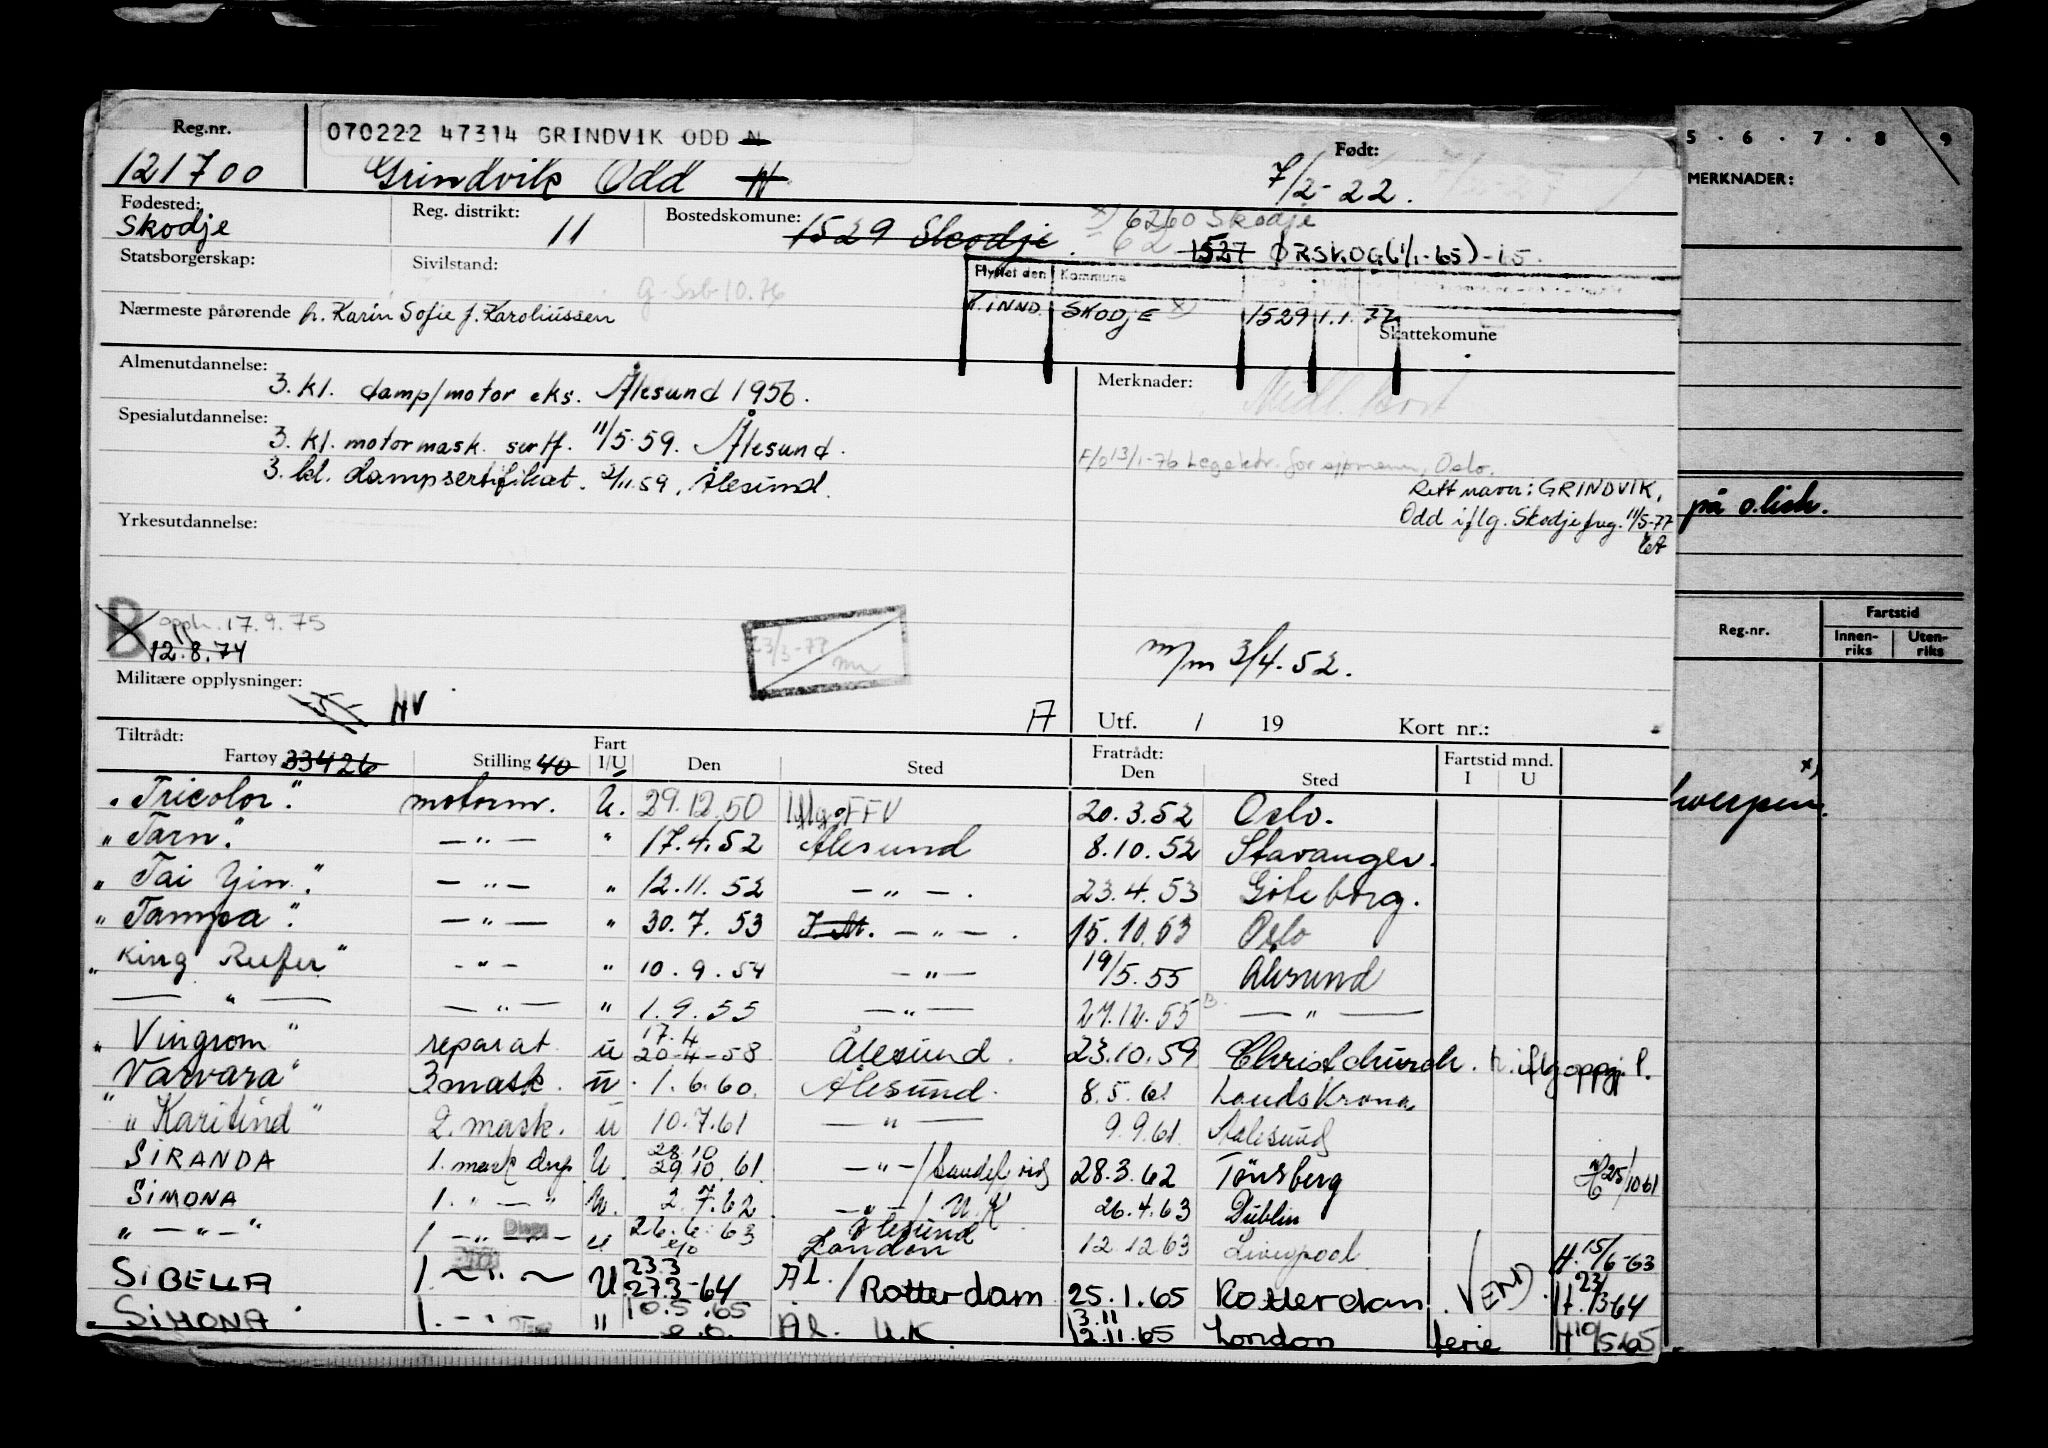 Reg.nr. 070222 47314 GRINDVIK ODD N Født:
121700 Grindvik Odd N 7/2-22.
Fødested: Skodje Reg. distrikt: 11 Bostedskomune: 1529 Skodje x) 6260 Skodje
1527 ØRSKOG (1/1-65)-15.
Statsborgerskap: Sivilstand: Flyttet den Kommune
Nærmeste pårørende h. Karin Sofie f. Karoliussen INND. SKODJE x) 1529 1.1.77
Skattekomune
Almenutdannelse: Merknader:
3. kl. damp/motor eks. Ålesund 1956.
Spesialutdannelse:
3. kl. motormask. sertf. 11/5-59. Ålesund.
3. kl. dampsertifikat. 2/11.59, Ålesund.
F/o 13/1-76 Legektr. for sjømenn, Oslo.
Rett navn: GRINDVIK,
Odd iflg. Skodje freg. 11/5-77
Yrkesutdannelse:
B opph. 17.9.75
12.8.74
23/3-77
m/m 3/4-52.
Militære opplysninger: HV
A Utf. / 19 Kort nr.:
Tiltrådt: Fratrådt:
Fartøy 33426 Stilling 40 Fart I/U Den Sted Den Sted Fartstid mnd. I U
"Tricolor". motorm. U. 29.12.50 Iflg. FFV 20.3.52 Oslo.
"Tarn". — " — " 17.4.52 Ålesund 8.10.52 Stavanger.
"Tai Yin". — " — " 12.11.52 — " — . 23.4.53 Göteborg.
"Tampa". — " — " 30.7.53 — " — . 15.10.53 Oslo
"King Rufer" — " — " 10.9.54 — " — 19/5.55 Ålesund
— " — — " — " 1.9.55 — " — 27.12.55 — " —
"Vingrom" reparat. u 17.4 20-4-58 Ålesund. 23.10.59 Christchurch. h. iflg oppg. f.
Varvara" 3 mask. u. 1.6.60. Ålesund. 8.5.61 Landskrona.
"Karitind" 2. mask. u 10.7.61 — " — 9.9.61 Ålesund
SIRANDA 1. mask U. 28.10 29.10.61. — " — / Sandefj. 28.3.62 Tönsberg 25/10 61
SIMONA 1. " — " U. 2.7.62 — " — / U.K 26.4.63 Dublin
" — " — " 1 — " — u 26.6.63 Ålesund London 12.12.63 Liverpool H. 15/6-63
SIBELLA 1. — " — U 23.3 27.3-64 Ål. / Rotterdam 25.1.65 Rotterdam. END. H. 23/3-64
SIMONA. 1. — " — " 10.5.65 Ål. U.K 3.11 12.11.65 London ferie H 10/5-65
5 · 6 · 7 · 8 9
MERKNADER:
på o.lish.
Reg.nr. Fartstid
Innen-riks Uten-riks
x)